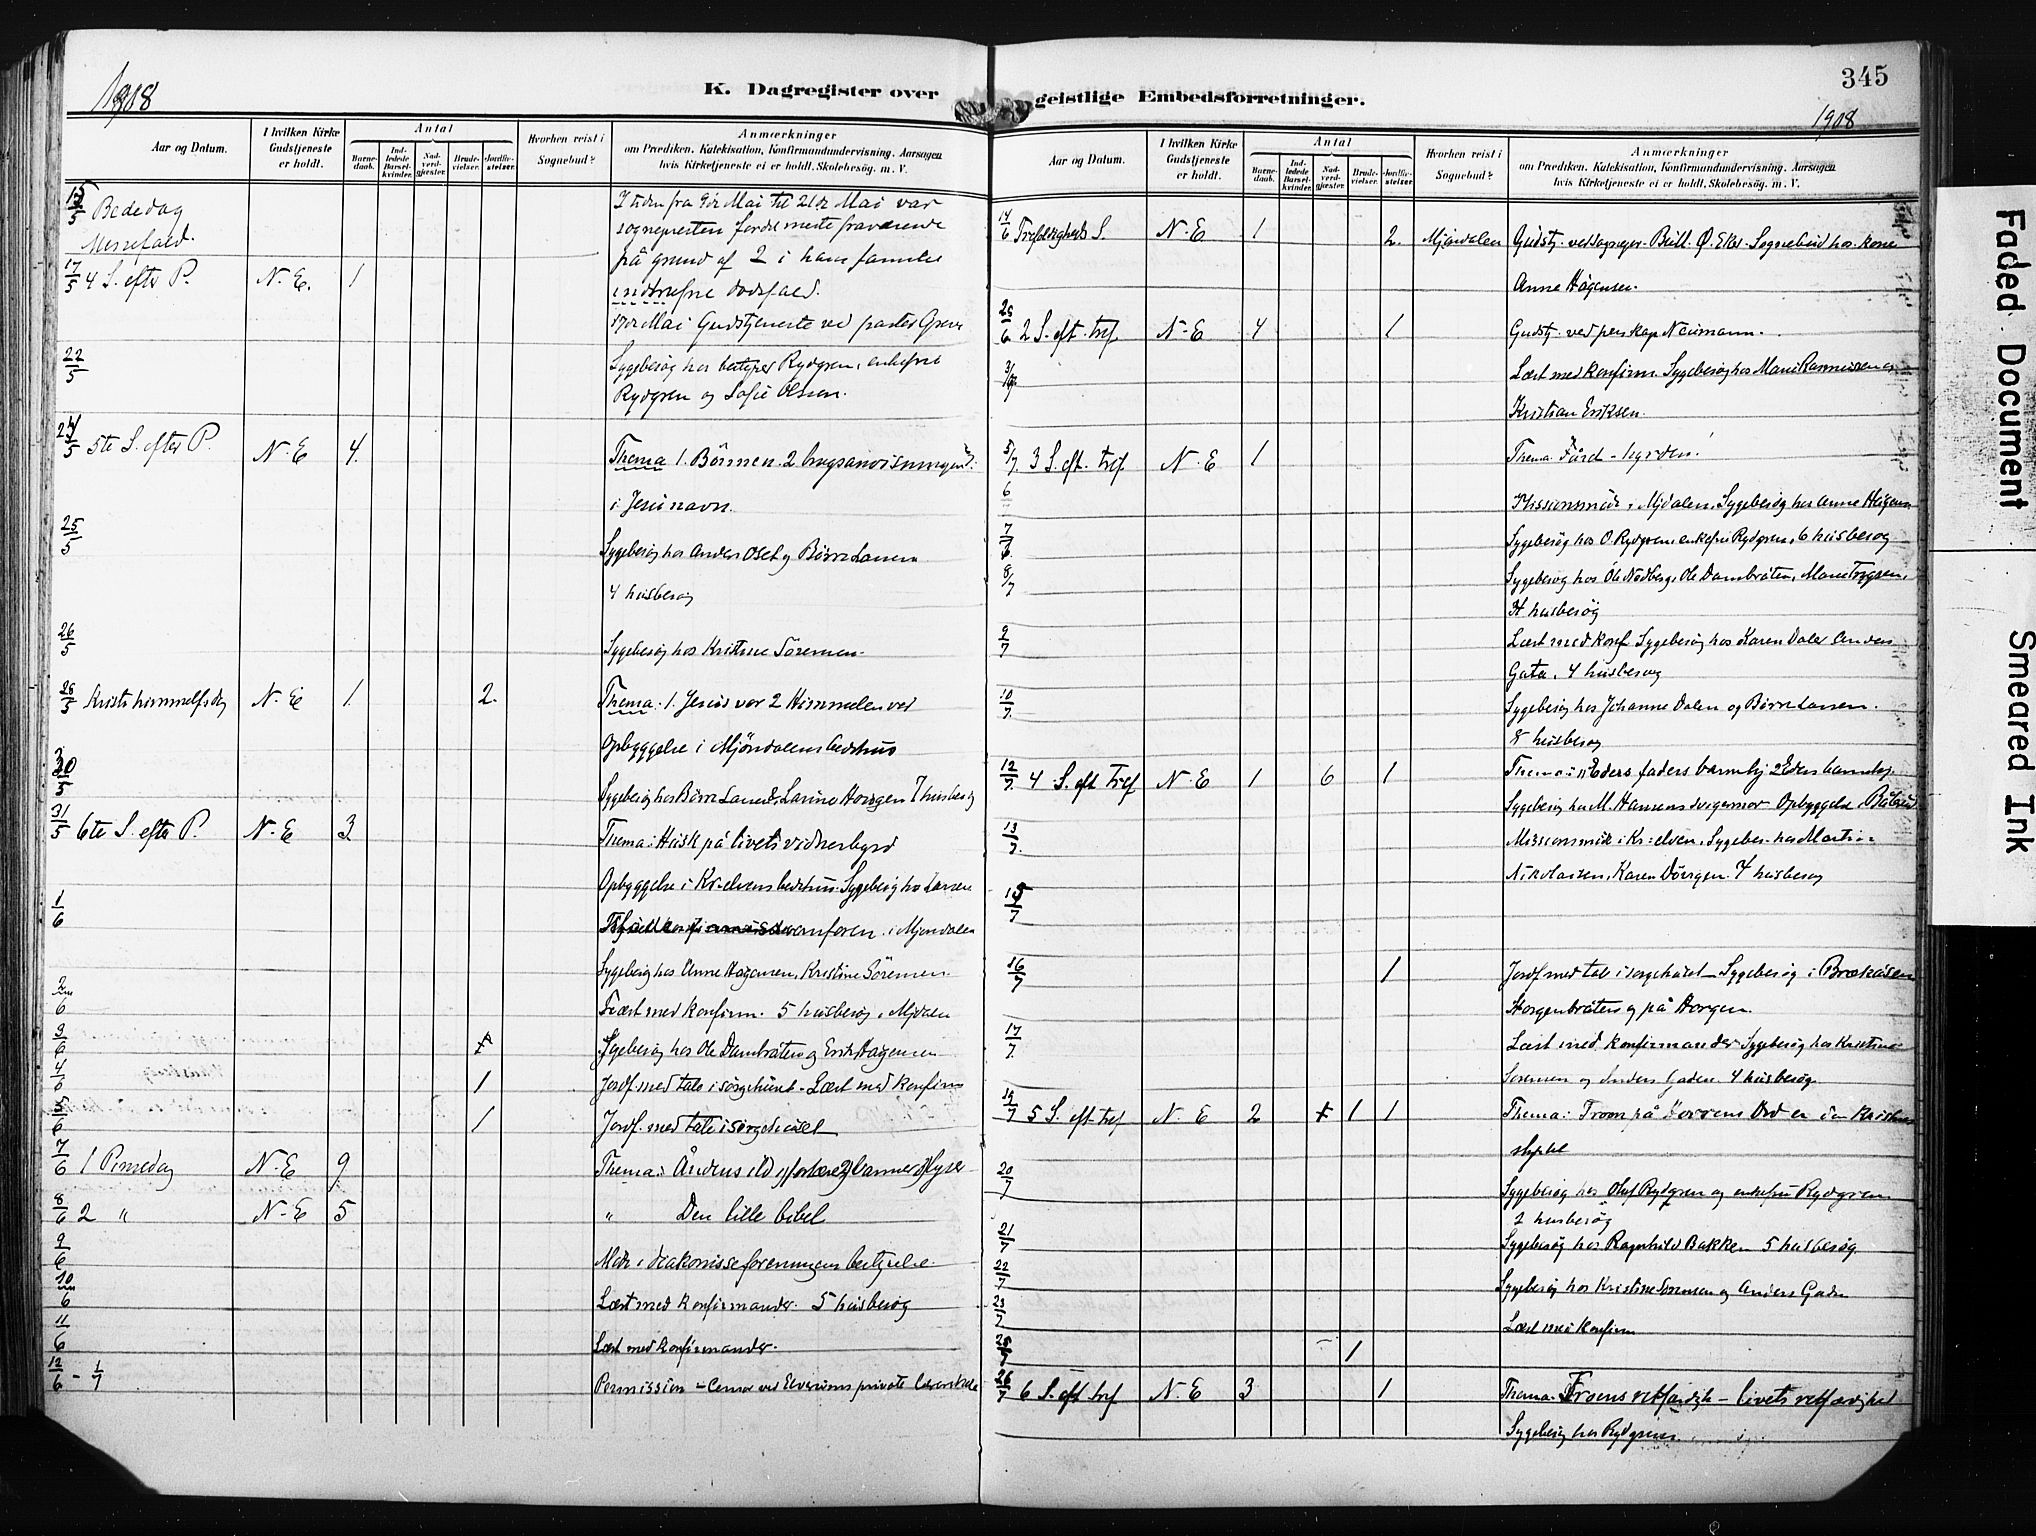 1908
K. Dagregister over
Aar og Datum.
I hvilken Kirke Gudstjeneste er holdt.
Antal
Barne-daab.
Ind-ledede Barsel-kvinder.
Nad-verd-gjæster.
Brude-vielser.
Jordfæ-stelser.
Hvorhen reist i Sognebud?
Anmærkninger
om Prædiken. Katekisation, Konfirmandundervisning. Aarsagen
hvis Kirketjeneste ei er holdt. Skolebesög. m. V.
15/5 Bededag
Messefald.
I tiden fra 9de Mai til 21de Mai var
sognepresten fordetmeste fraværende
på grund af 2 i hans familie
indtrufne dødsfald.
17/5 4 S. efter P. N. E. 1
17de Mai Gudstjeneste ved pastor Greve
22/5
Sygebesøg hos bestyrer Rydgren, enkefru
Rydgren og Sofie Olsen.
24/5 5te S. efter P. N. E 4.
Thema 1. Bönnen. 2 brugsanvisningen:
i Jesu navn.
25/5
Sygebesøg hos Anders Oset og Börre Larsen
4 husbesøg
26/5
Sygebesøg hos Kristine Sörensen.
28/5 Kristi himmelfsdag N. E 1. 2.
Thema: 1. Jesus vor 2 Himmelen ved
Opbyggelse i Mjöndalens bedehus
30/5
Sygebesøg hos Börre Larsen, Larine Horgen 7 husbesøg
31/5 6te S. efter P. N. E 3.
Thema: Husk på livets vidnesbyrd
Opbyggelse i Kr-elvens bedehus. Sygebesøg hos Larsen
1/6
foren. i Mjøndalen
Sygebesög hos Anne Hagensen, Kristine Sörensen.
2/6
Læst med konfirm. 5 husbesøg i Mjdalen
3/6
Sygebesøg hos Ole Dambråten og Erik Hagensen
4/6 1
Jordf. med tale i sørgehuset. Læst med konfirm
5/6 1
Jordf. med tale i sørgehuset
7/6 1 Pinsedag N. E 9
Thema: Åndens ild 1) fortærer 2) varmer 3) lyser
8/6 2 " N. E 5
" Den lille bibel
9/6
Möde i diakonisseforeningens bestyrelse.
10/6
Læst med konfirmander. 5 husbesøg
11/6
Læst med konfirmander.
12/6 - 1/7
Permission - Censor ved Elverums private lærerskole
345
1908
geistlige Embedsforretninger.
Aar og Datum.
I hvilken Kirke Gudstjeneste er holdt.
Antal
Barne-daab.
Ind-ledede Barsel-kvinder.
Nad-verd-gjæster.
Brude-vielser.
Jordfæ-stelser.
Hvorhen reist i Sognebud?
Anmærkninger
om Prædiken. Katekisation, Konfirmandundervisning. Aarsagen
hvis Kirketjeneste ei er holdt. Skolebesög. m. V.
14/6 Trefoldigheds S. N. E 1 2. Mjöndalen Gudstj. ved sogneprr. Bull. Ø. Eker. Sognebud hos kone
Anne Hågensen.
2 S. eft. tref. N. E 4 1 Gudstj. ved perskap Neumann.
3/7
Læst med konfirm. Sygebesøg hos Marie Rasmussen og
Kristian Eriksen.
5/7 3 S. eft. tref. N. E 1
Thema: Fård - hyrden!
6
Missionsmöde i Mjdalen. Sygebesög hos Anne Hågens
7/7
Sygebesøg hos O. Rydgren, enkefru Rydgren, 6 husbesøg
8/7
Sygebesøg hos Ole Nødberg, Ole Dambråten, Marie Trygsen.
husbesøg
9/7
Læst med konf. Sygebesøg hos Karen Daler Anders
Gata. 4 husbesøg
10/7
Sygebesøg hos Johanne Dalen og Börre Larsen.
8 husbesøg
12/7 4 S. eft Tref N. E 1 6 1
Thema: 1) Eders faders barmhj 2 Eders barmhj.
Sygebesøg hos M. Hansens svigermor Opbyggelse i
13/7.
Missionsmöde i Kr-elven. Sygebes. hos Martin
Nikolaisen, Karen Dövrgen. 7 husbesøg
15/7
16/7 1
Jordf med tale i sørgehuset - Sygebesøg i Brækåsen
Horgenbråten og på Horgen.
17/7.
Læst med konfirmander Sygebesøg hos Kristine
Sorensen og Anders Gaden. 4 husbesøg.
19/7 5 S. eft. tref N. E 2 1 1
Thema: Troen på Herrens Ord er den kristnes
styrke
20/7
Sygebesøg hos Oluf Rydgren og enkefru Rydgren.
2 husbesøg
21/7
Sygebesøg hos Ragnhild Bakken 5 husbesøg.
22/7
Sygebesøg hos Kristine Sorensen og Anders Gaden
23/7
Læst med konfirm
25/7 1
26/7 6 S. eft tref. N. E 3 1
Thema: Troens retfærdigh - livets retfærdighed
Sygebesøg hos Rydgren
Faded Document
Smeared Ink